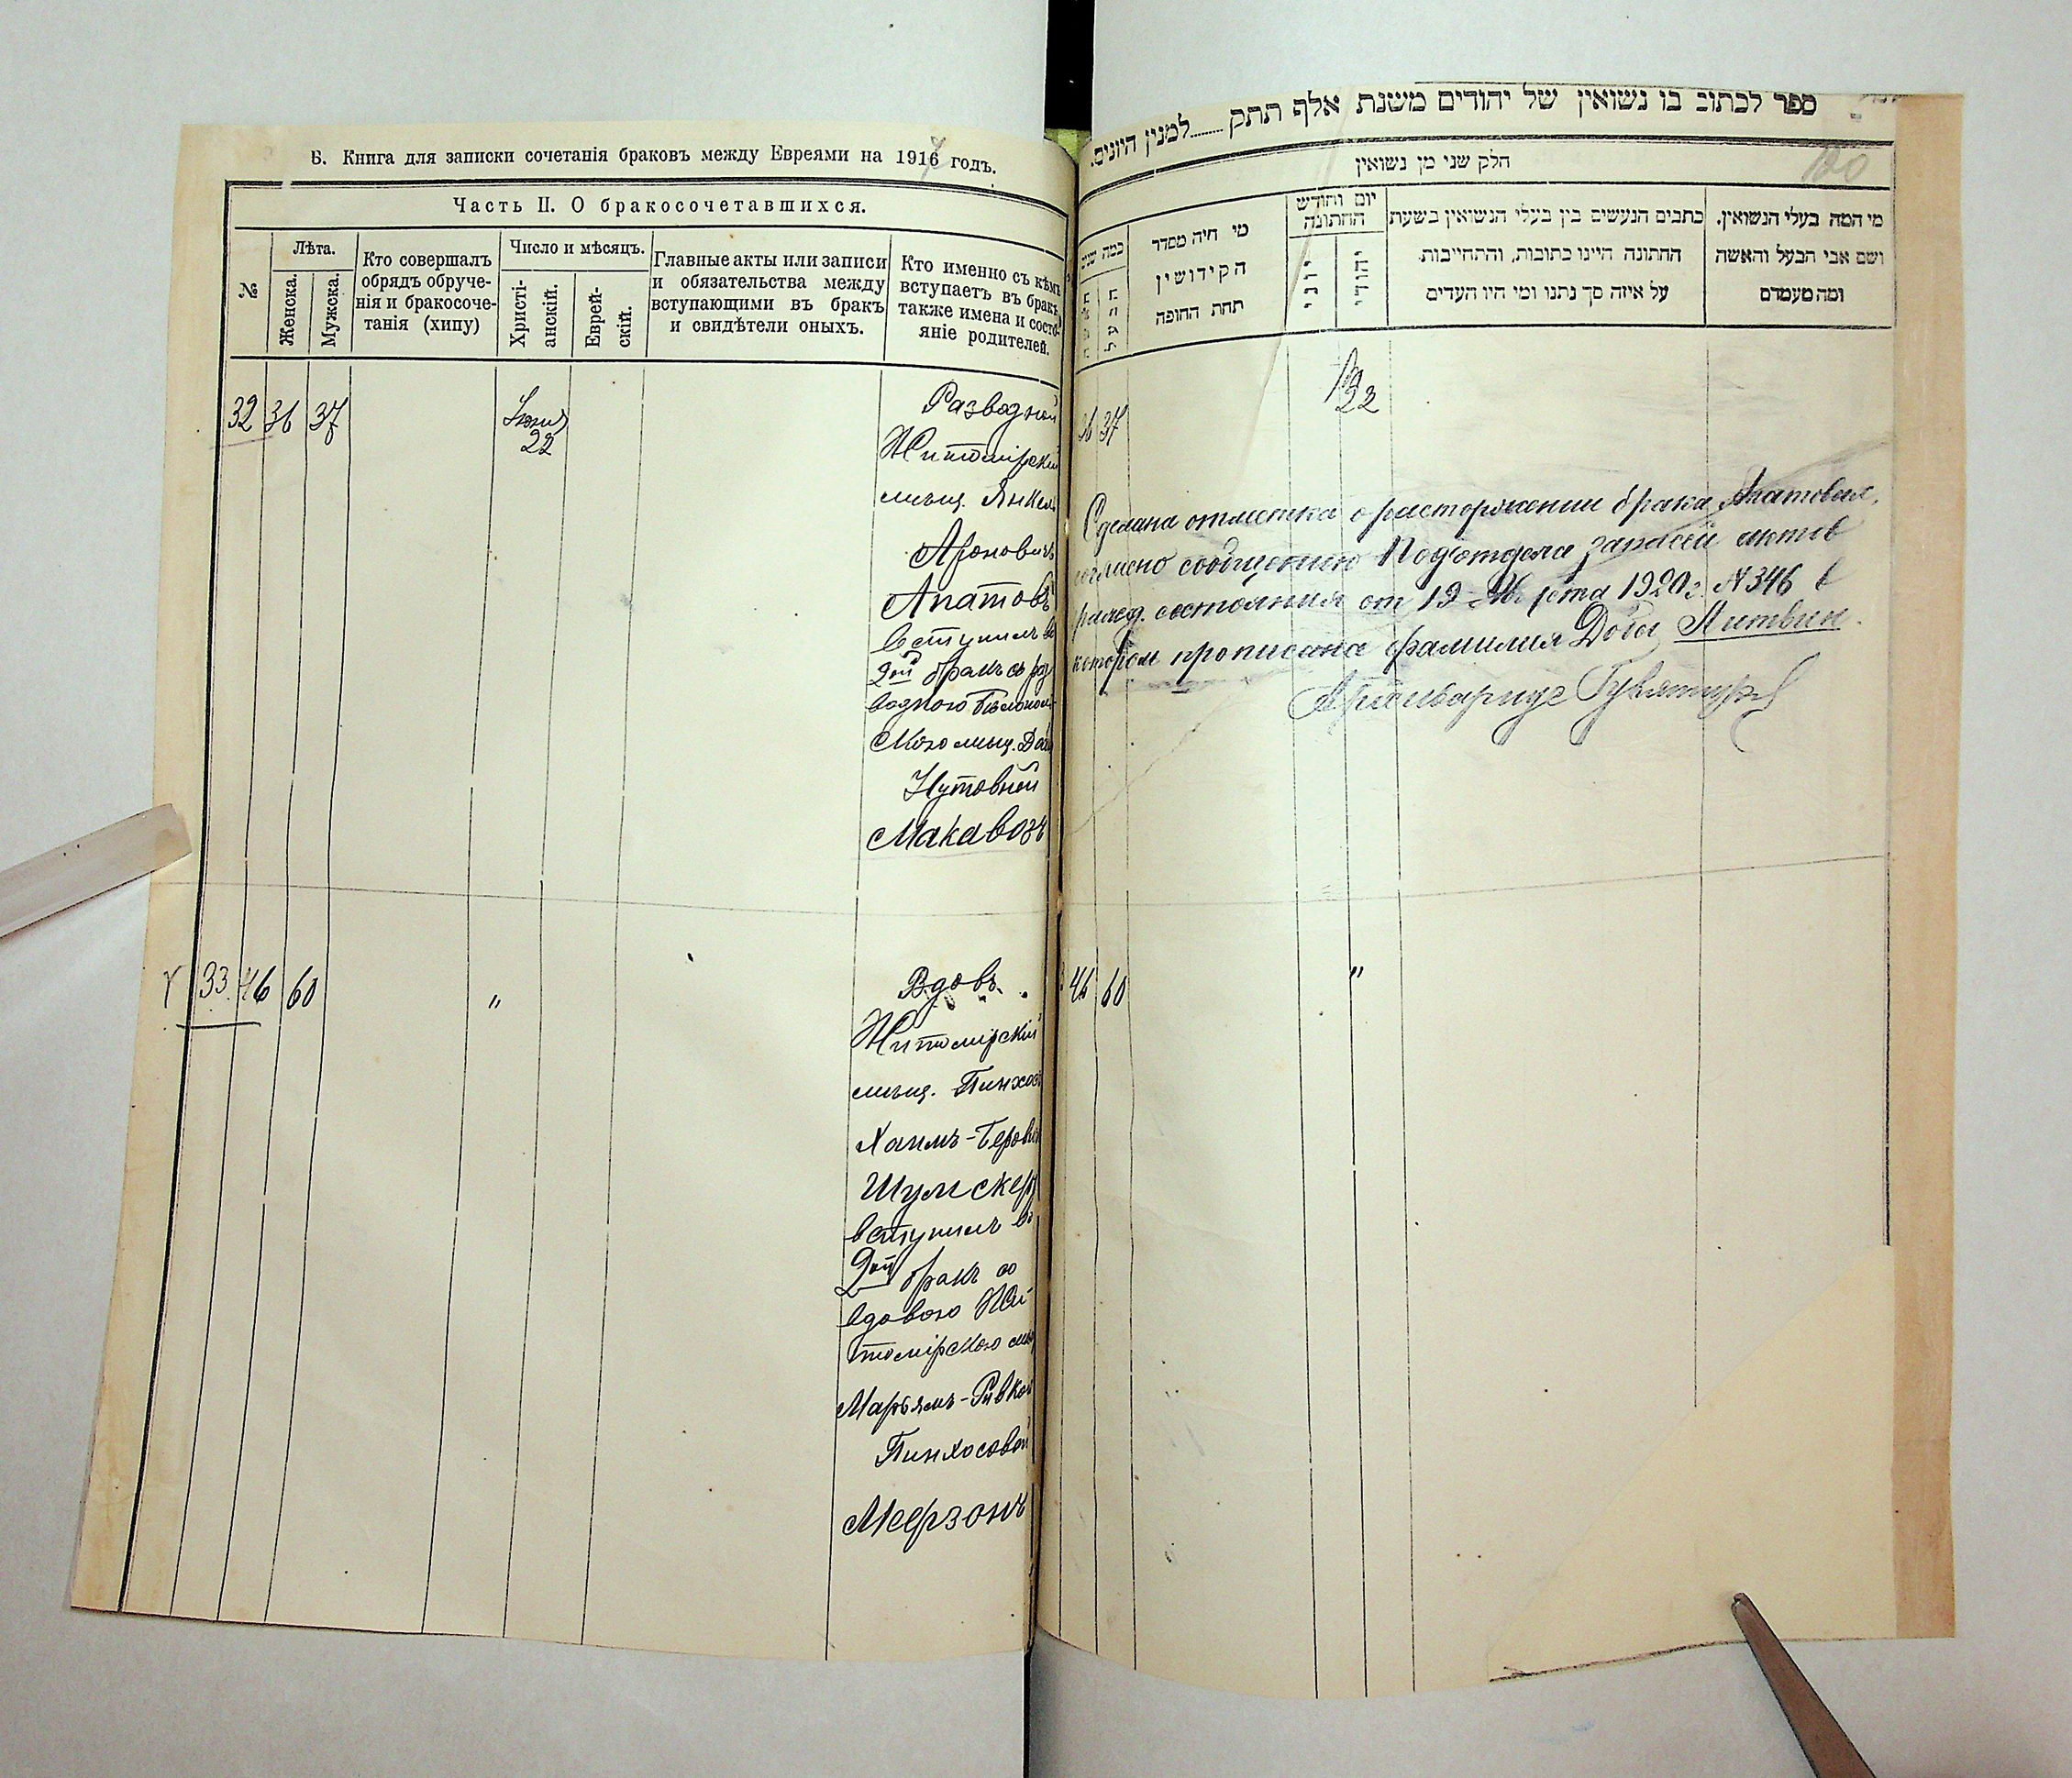 В. Книга для записки сочетанія браковъ между Евреями на 1917 годъ.
Часть II. О бракосочетавшихся.
№
Лѣта.
Женска.
Мужска.
Кто совершалъ
обрядъ обруче-
нія и бракосоче-
танія (хипу)
Число и мѣсяцъ.
Христі-
анскій.
Еврей-
скій.
Главные акты или записи
и обязательства между
вступающими въ бракъ
и свидѣтели оныхъ.
Кто именно съ кѣмъ
вступаетъ въ бракъ,
также имена и состо-
яніе родителей.
32 36 37
Іюня
22
Разводной
Житомірскій
мѣщ. Янкель
Ароновичъ
Апатовъ
вступилъ во
2ой бракъ съ раз
водною
мѣщ.
Нутовной
Макавозъ
33 46 60 "
Вдовъ
Житомірскій
мѣщ. Пинхосъ
Хаимъ-Беровичъ
Шумскеръ
вступилъ во
2ой бракъ со
вдовою Жи-
томірскою мѣщ
Марьямъ-Ривкой
Пинхосовой
Меерзонъ
ספר לכתוב בו נשואין של יהודים משנת אלף תתק ........ למנין היונים.
120
חלק שני מן נשואין
מי המה בעלי הנשואין.
ושם אבי הבעל והאשה
ומה מעמדם
כתבים הנעשים בין בעלי הנשואין בשעת
החתונה היינו כתובות, והתחייבות
על איזה סך נתנו ומי היו העדים
יום וחודש
החתונה
יהודי
יוני
מי היה מסדר
הקידושין
תחת החופה
כמה שנים
36 37
22
Сделана отметка о расторжении брака Апатовых,
согласно сообщению Подотдела записей актов
гражд. состояния от 19 Марта 1920 г. N 346 в
котором прописана фамилия Добы Литвин.
46 60 "